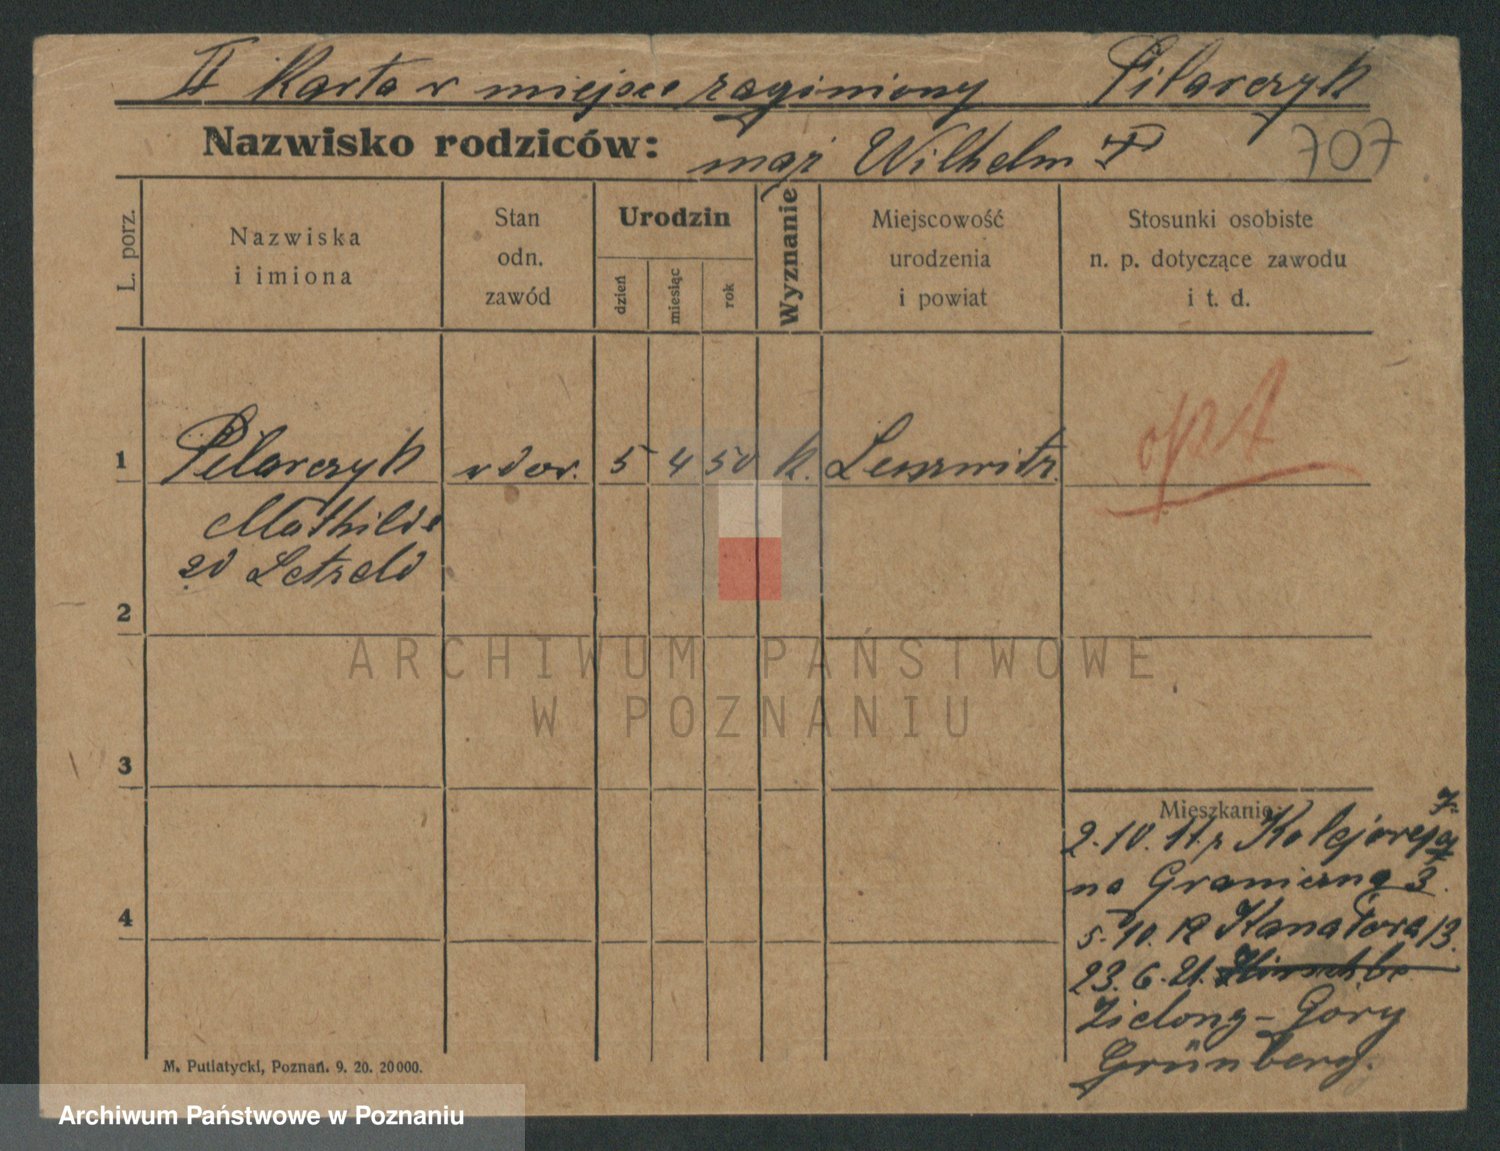 II Karta w miejsce zaginiony Pilarczyk
Nazwisko rodziców: mąż Wilhelm
707
L. porz.
Nazwiska
i imiona
Stan
odn.
zawód
Urodzin
dzień
miesiąc
rok
Wyznanie
Miejscowość
urodzenia
i powiat
Stosunki osobiste
n. p. dotyczące zawodu
i t. d.
1 Pilarczyk wdow. 5 4 50 k.
Mathilde
zd
opt
2
3
4
Mieszkanie:
2. 10. 11. z Kolejowej
na Graniczną 3.
5. 10. 12 Kanałowa 13.
23. 6. 21.
Zielony-Gory
Grünberg.
M. Putiatycki, Poznań. 9. 20. 20000.
ARCHIWUM PAŃSTWOWE
W POZNANIU
Archiwum Państwowe w Poznaniu